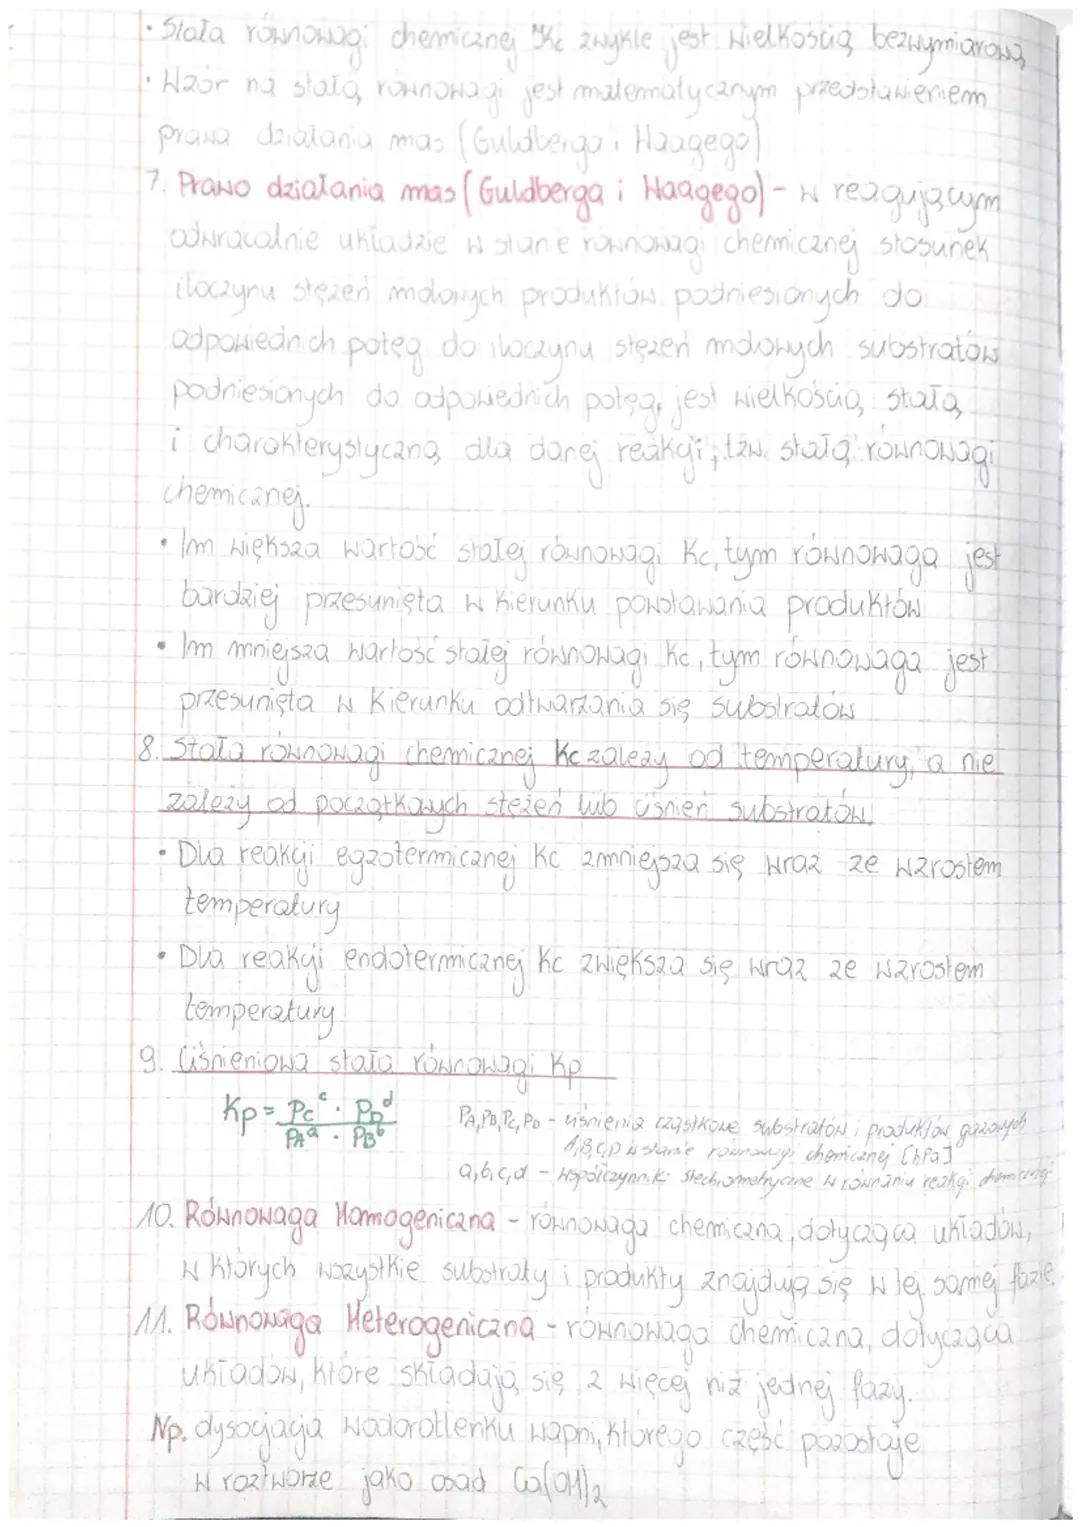 • Stała równowagi chemicznej Kc zwykle jest wielkością bezwymiarową
• Wzór na stałą równowagi jest matematycznym przedstawieniem
prawa działania mas (Guldberga i Waagego)
7. Prawo działania mas (Guldberga i Waagego) - w reagującym
odwracalnie układzie w stanie równowagi chemicznej stosunek
iloczynu stężeń molowych produktów podniesionych do
odpowiednich potęg do iloczynu stężeń molowych substratów
podniesionych do odpowiednich potęg, jest wielkością stałą
i charakterystyczną dla danej reakcji, tzw. stałą równowagi
chemicznej.
• Im większa wartość stałej równowagi Kc, tym równowaga jest
bardziej przesunięta w kierunku powstawania produktów
• Im mniejsza wartość stałej równowagi Kc, tym równowaga jest
przesunięta w kierunku odtwarzania się substratów
8. Stała równowagi chemicznej Kc zależy od temperatury, a nie
zależy od początkowych stężeń lub ciśnień substratów.
• Dla reakcji egzotermicznej Kc zmniejsza się wraz ze wzrostem
temperatury
• Dla reakcji endotermicznej Kc zwiększa się wraz ze wzrostem
temperatury
9. Ciśnieniowa stała równowagi Kp
Kp = Pc^c · PD^d / PA^a · PB^b
PA, PB, Pc, PD - ciśnienia cząstkowe substratów i produktów gazowych
A, B, C, D w stanie równowagi chemicznej [hPa]
a, b, c, d - współczynniki stechiometryczne w równaniu reakcji chemicznej
10. Równowaga Homogeniczna - równowaga chemiczna, dotycząca układów,
w których wszystkie substraty i produkty znajdują się w tej samej fazie.
11. Równowaga Heterogeniczna - równowaga chemiczna, dotycząca
układów, które składają się z więcej niż jednej fazy.
Np. dysocjacja wodorotlenku wapni, którego część pozostaje
w roztworze jako osad Ca(OH)2